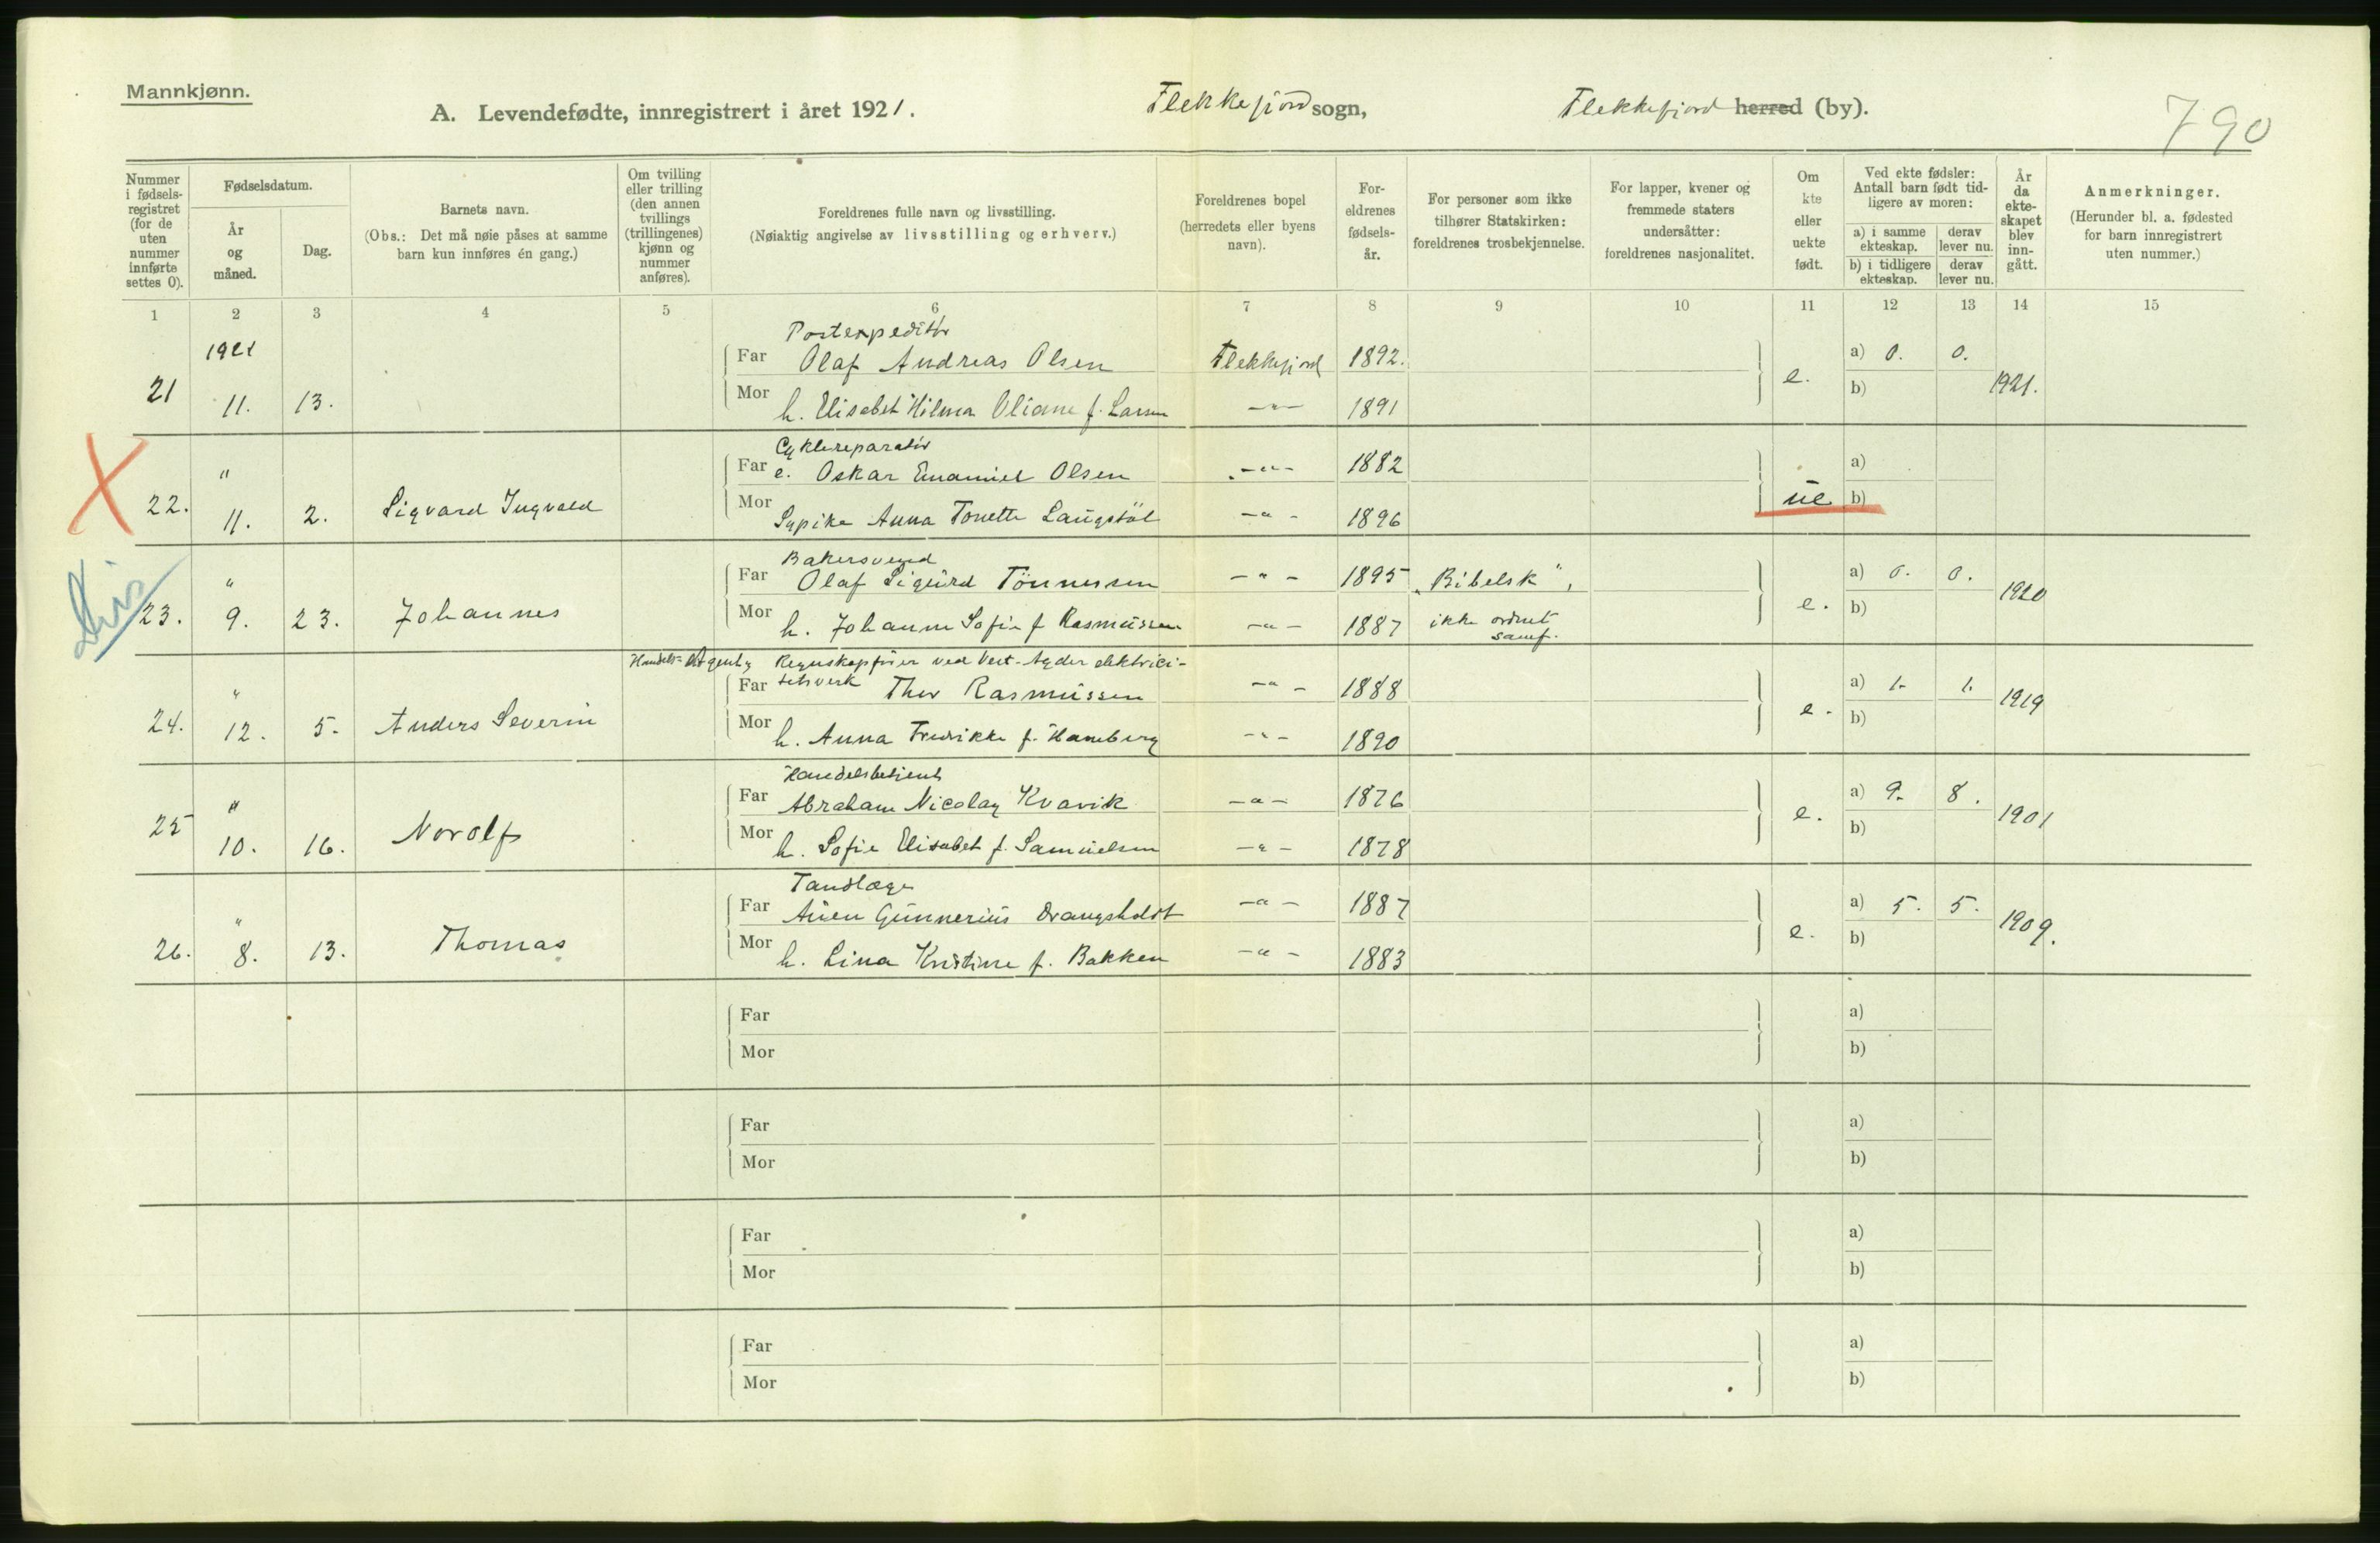 Mannkjønn.
A. Levendefødte, innregistrert i året 1921.
Flekkefjord sogn,
Flekkefjord herred (by).
790
Nummer i fødselsregistret (for de uten nummer innførte settes 0).
Fødselsdatum.
År og måned.
Dag.
Barnets navn.
(Obs.: Det må nøie påses at samme barn kun innføres én gang.)
Om tvilling eller trilling (den annen tvillings (trillingenes) kjønn og nummer anføres).
Foreldrenes fulle navn og livsstilling.
(Nøiaktig angivelse av livsstilling og erhverv.)
Foreldrenes bopel (herredets eller byens navn).
Foreldrenes fødselsår.
For personer som ikke tilhører Statskirken: foreldrenes trosbekjennelse.
For lapper, kvener og fremmede staters undersåtter: foreldrenes nasjonalitet.
Om kte eller uekte født.
Ved ekte fødsler: Antall barn født tidligere av moren:
a) i samme ekteskap.
derav lever nu.
b) i tidligere ekteskap.
derav lever nu.
År da ekteskapet blev inngått.
Anmerkninger.
(Herunder bl. a. fødested for barn innregistrert uten nummer.)
1 2 3 4 5 6 7 8 9 10 11 12 13 14 15
1921
Postexpeditör
Far Olaf Andreas Olsen Flekkefjord 1892. a) 0. 0.
21 11. 13. e. 1921.
Mor h. Elisabet Hilma Oliane f. Larsen -"- 1891 b)
Cyklereparatör
" Far e. Oskar Emanuel Olsen -"- 1882 a)
22. 11. 2. Sigvard Ingvald ue b)
Mor Sypike Anna Tonette Langstöl -"- 1896
Bakersvend
" Far Olaf Sigurd Tönnessen -"- 1895 "Bibelsk", a) 0. 0.
23. 9. 23. Johannes e. 1920
Mor h. Johanne Sofie f. Rasmussen -"- 1887 ikke ordnet samf. b)
Handels= Agent, Regnskapsfører ved Vest-Agder elektrici-
" Far tetsverk Thor Rasmussen -"- 1888 a) 1. 1.
24. 12. 5. Anders Severin e. 1919
Mor h. Anna Fredrikke f. Hamberg -"- 1890 b)
Handelsbetjent
" Far Abraham Nicolay Kvavik -"- 1876 a) 9. 8.
25 10. 16. Norolf e. 1901
Mor h. Sofie Elisabet f. Samuelsen -"- 1878 b)
Tandlæge
" Far Auen Gunnerius Drangsholdt -"- 1887 a) 5. 5.
26. 8. 13. Thomas e. 1909.
Mor h. Lina Kristine f. Bakken -"- 1883 b)
Far a)
Mor b)
Far a)
Mor b)
Far a)
Mor b)
Far a)
Mor b)